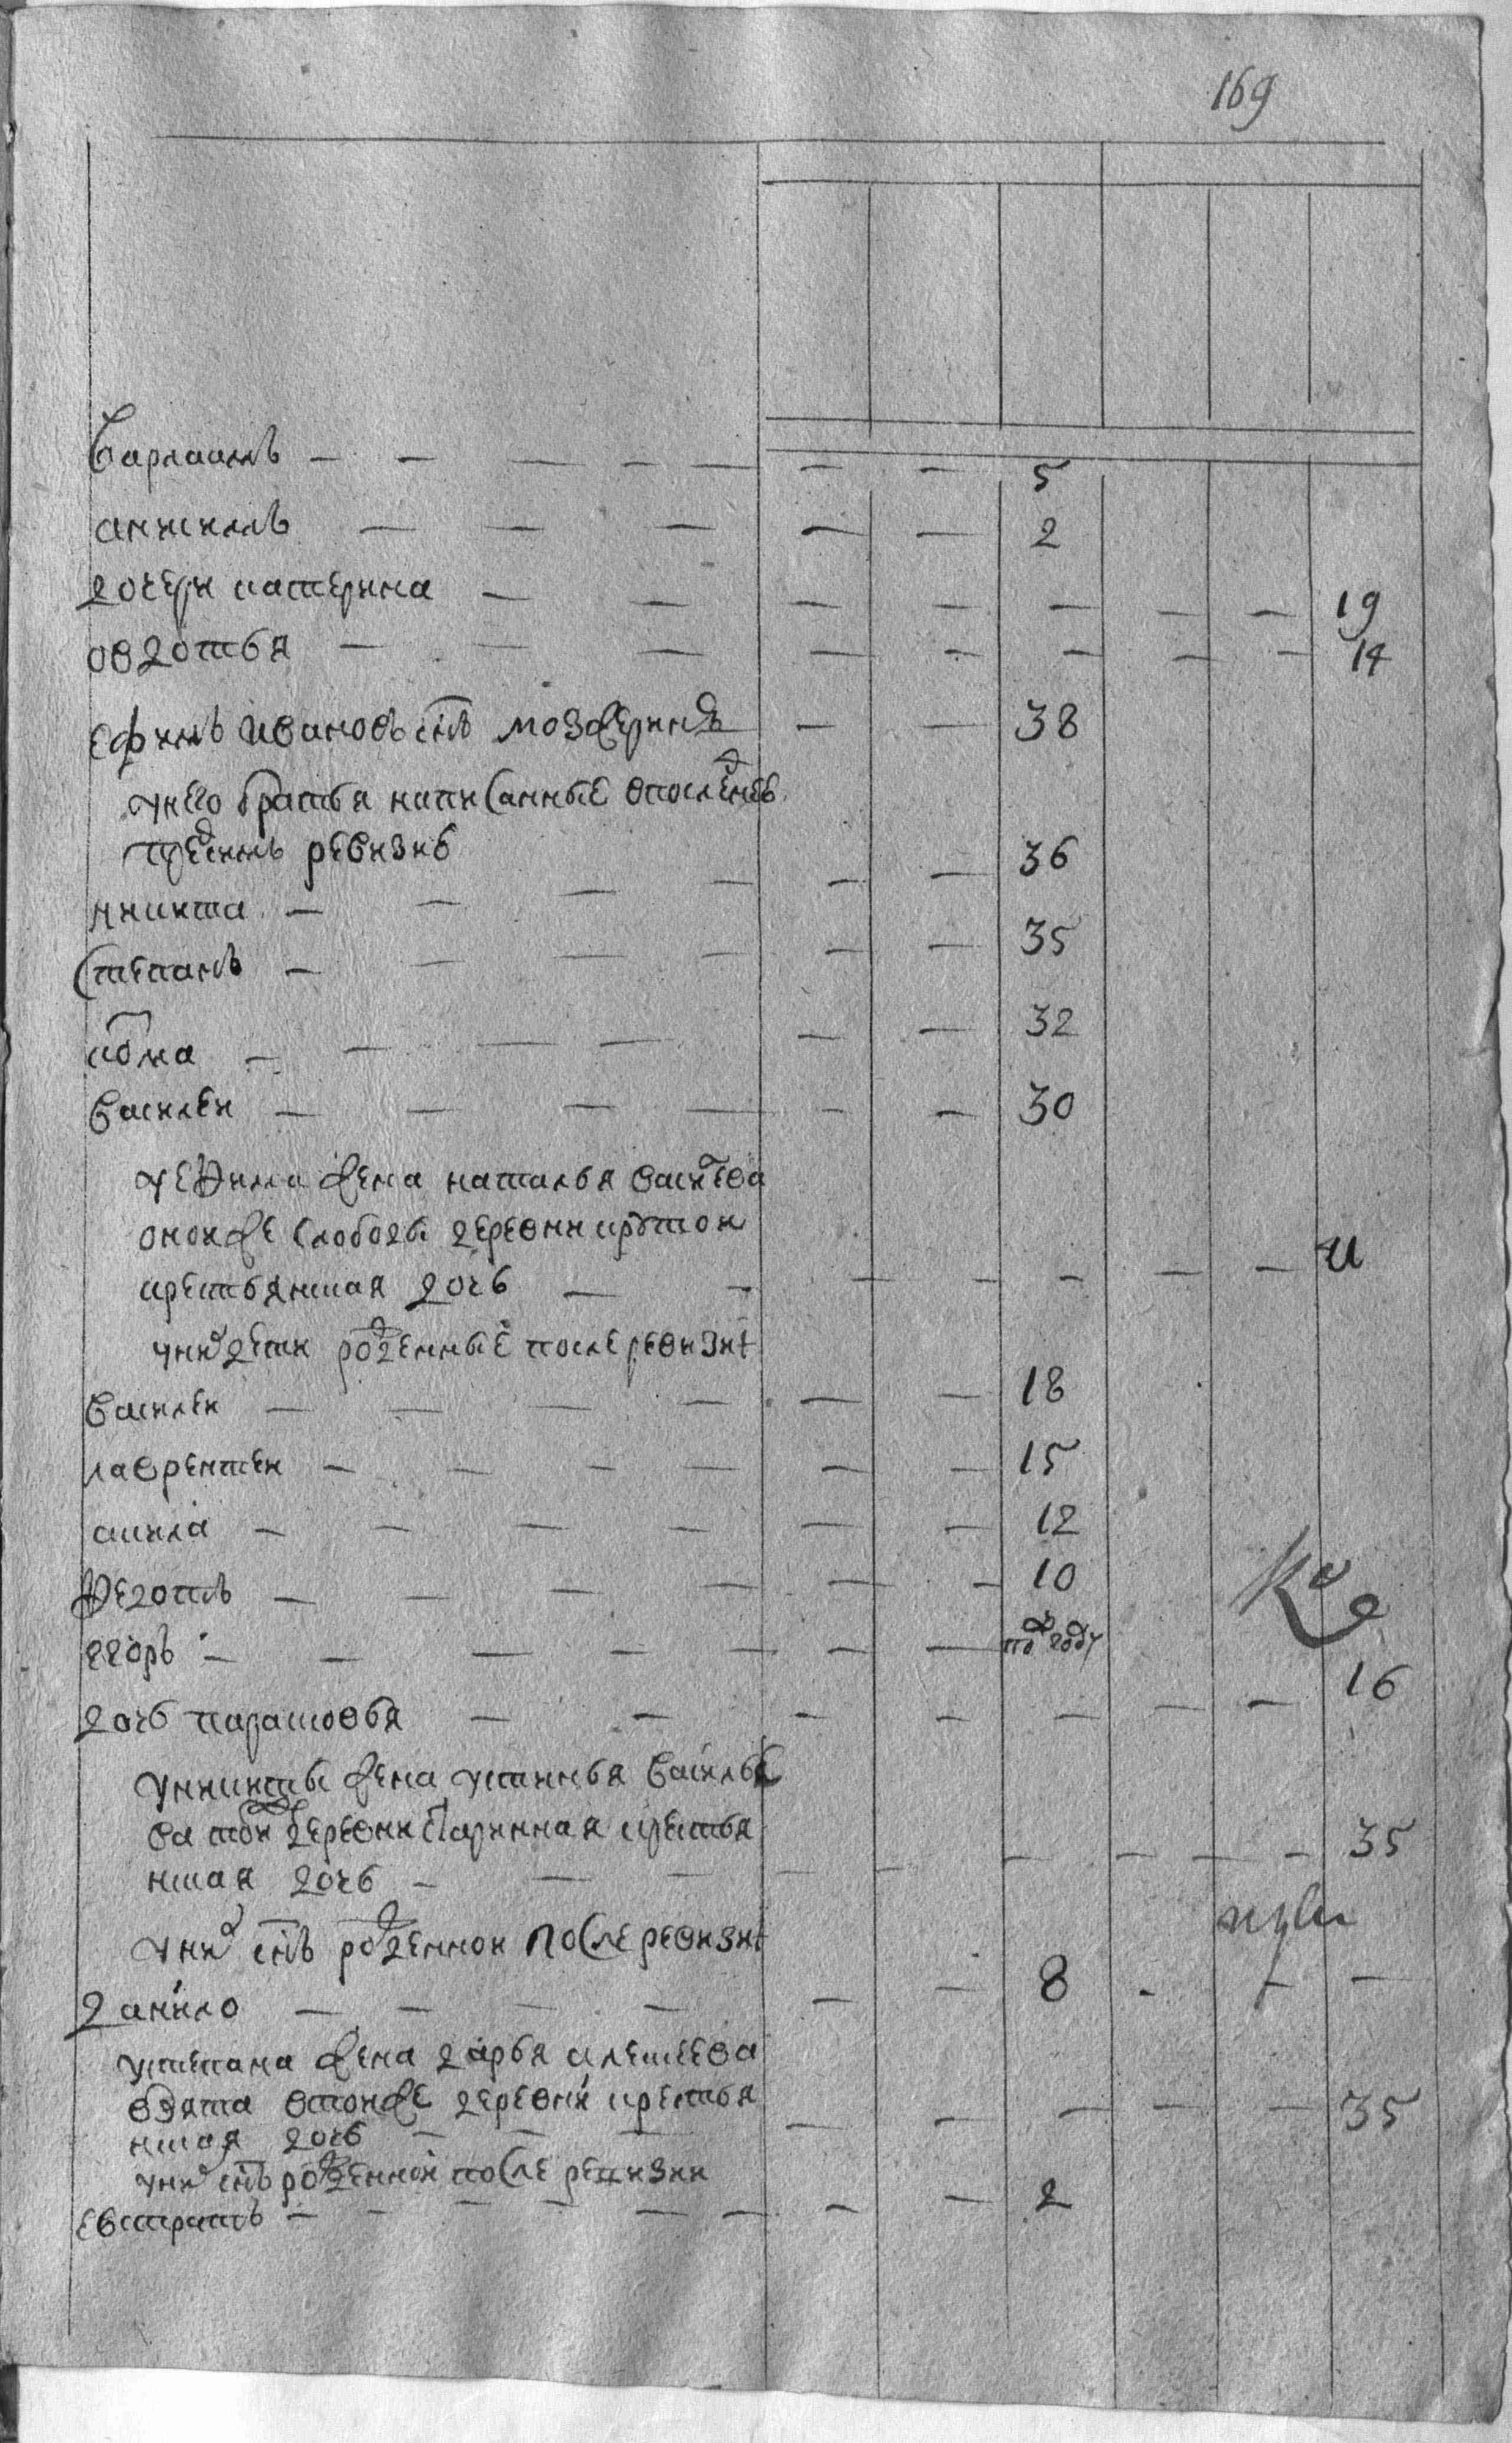 169
Варлаамъ — — — — — — — 5
анисимъ — — — — — 2
дочери катерина — — — — — — — 19
овдотья — — — — — — — — 14
ефимъ Ивановъ снъ — — 38
унего братья написанные впоследнеъ
пред симъ ревизиѣ
никита — — — — — — 36
Степанъ — — — — — — 35
козма — — — — — — 32
Василеи — — — — — — 30
уефима жена наталья васильева
онои же слободы деревни крутои
крестьянская дочь — — — — — — —
уних дети рожденные после ревизиі
Василеи — — — — — — 18
лаврентеи — — — — — — 15
акила — — — — — — 12
Федотъ — — — — — — 10
егоръ — — — — — — по году
дочь парасковья — — — — — — — 16
уникиты жена устинья Василье
ва тои же деревни старинная крестья
нская дочь — — — — — — — — — 35
уних снъ рожденнои после ревизиі
данило — — — — — — 8 - — —
устепана жена дарья алексеева
взята втоиже деревни крестья
нская дочь — — — — — — — — 35
уних снъ рожденнои после ревизии
Евстратъ — — — — — — — 2